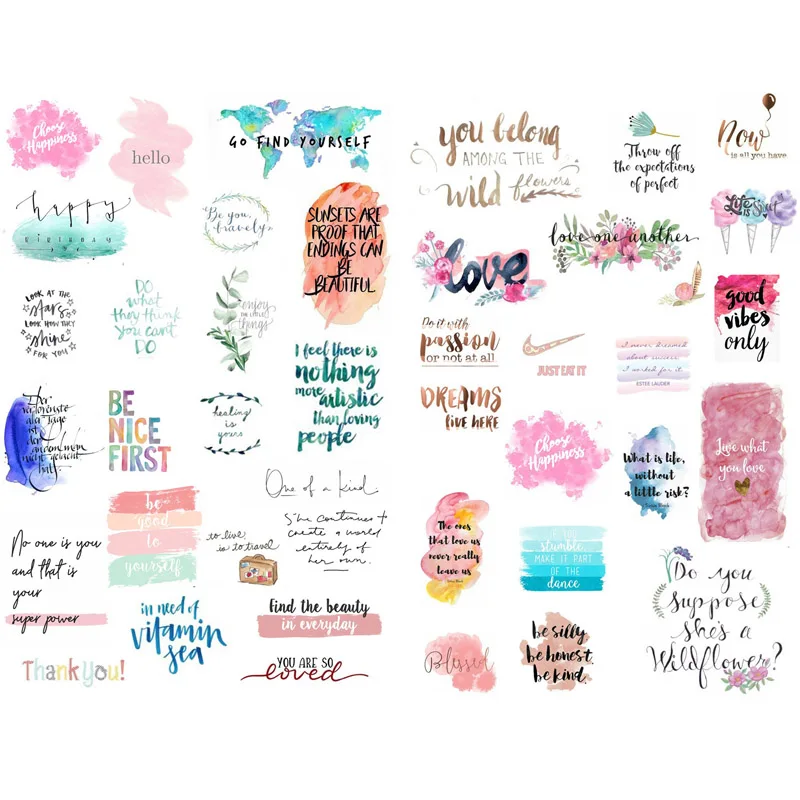 Choose
Happiness
hello
GO FIND YOURSELF
happy
BIRTHDAY
Be you,
bravely
SUNSETS ARE
PROOF THAT
ENDINGS CAN
BE
BEAUTIFUL
LOOK AT THE
stars
LOOK HOW THEY
shine
FOR YOU
DO
what
they think
you can't
DO
enjoy
THE LITTLE
things
I feel there is
nothing
more
artistic
than loving
people
Der
verlorenste
aller Tage
ist
der
an dem man
nicht gelacht
hat.
BE
NICE
FIRST
healing
is
yours
One of a kind.
be
good
to
yourself
She continues to
create a world
entirely of
her own.
to live
is to travel
No one is you
and that is
your
super power
in need of
vitamin
sea
find the beauty
in everyday
Thank you!
YOU ARE SO
loved
you belong
AMONG THE
wild flowers
Throw off
the expectations
of perfect
Now
is all you have
love one another
Life is
love
good
vibes
only
Do it with
passion
or not at all
JUST EAT IT
I never dreamed
about success.
I worked for it.
ESTEE LAUDER
DREAMS
live here
Choose
Happiness
What is life,
without
a little risk?
Live what
you love
The ones
that love us
never really
leave us
IF YOU
stumble
MAKE IT PART
OF THE
dance
Do you
suppose
she's a
Wildflower?
Blessed
be silly.
be honest.
be kind.